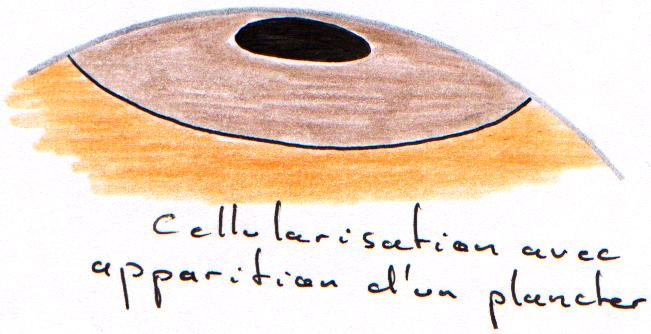 Cellularisation avec
apparition d'un plancher